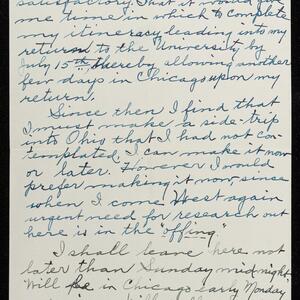 satisfactory. That it would give
me time in which to complete
my itineracy leading into my
return to the University by
July 15th thereby allowing another
few days in Chicago upon my
return.
Since then I find that
I must make a side-trip
into Ohio that I had not con-
templated. I can make it now
or later. However I would
prefer making it now, since
when I come West again
urgent need for research out
here is in the "offing."
I shall leave here not
later than Sunday midnight
Will be in Chicago early Monday